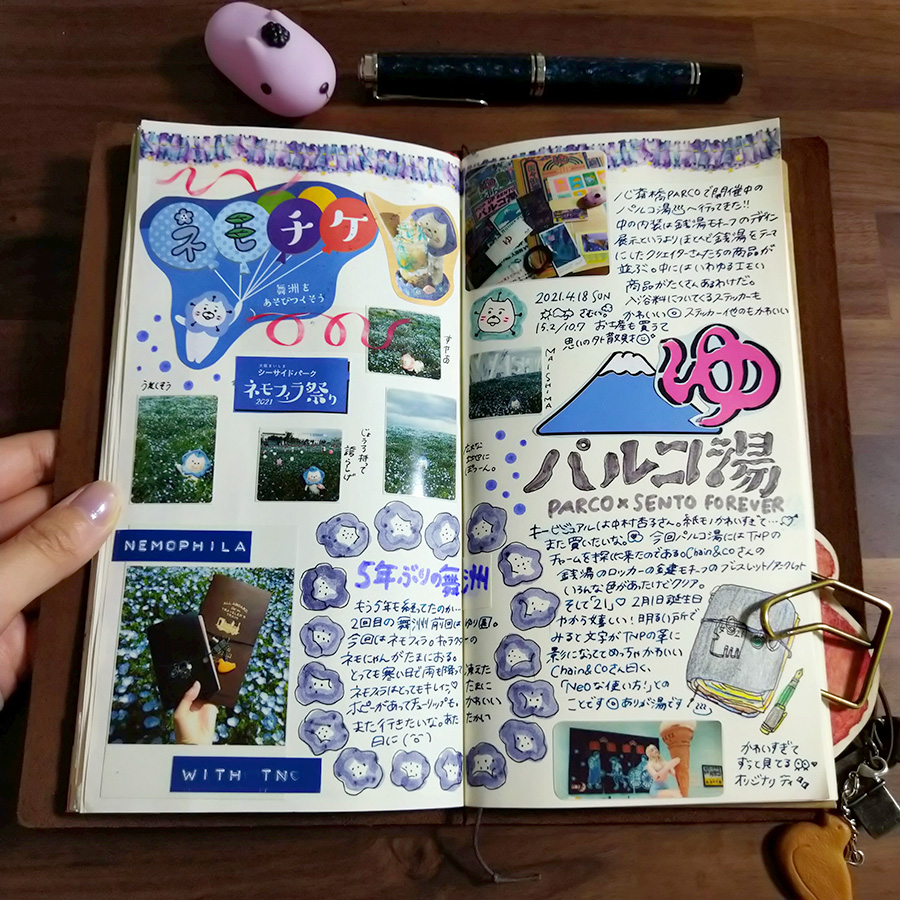 ネモチケ
舞洲を
あそびつくそう
すやあ
大阪まいしま
シーサイドパーク
ネモフィラ祭り
2021
うたたそう
じょうろ持って
誇らしげ
NEMOPHILA
WITH TN
5年ぶりの舞洲
もう5年も経ってたのか…
2回目の舞洲 前回はゆり園。
今回はネモフィラ。キャラクターの
ネモにゃんがたまにおる。
とっても寒い日で雨も降って
ネモフィラはとってもキレイ♡
ポピーがあってチューリップも。
また行きたいな。あた
日に
心斎橋PARCOで開催中の
パルコ湯へ行ってきた!!
中の内装は銭湯モチーフのデザイン
展示というよりほとんど銭湯をテーマ
にしたクリエイターさんたちの商品が
並ぶ。中にはいわゆるエモい
商品がたくさんあるわけだ。
入浴料についてくるステッカーも
かわいい ステッカー他のもかわいい
2021.4.18 SUN
さむい。
15.2/10.7 お土産も買うて
思いの外散財。
MAISHIMA
ゆ
パルコ湯
PARCO×SENTO FOREVER
キービジュアルは中村杏子さん。紙モノかわいすぎて…
また買いたいな。 今回パルコ湯にはTNPの
チャームを探に来たのである。Chain&Coさんの
銭湯のロッカーの鍵モチーフのブレスレット/アンクレット
いろんな色があったけどクリア。
そして「21」♡ 2月1日誕生日
やから嬉しい! 明るい所で
みると文字がTNPの革に
影になっててめっちゃかわいい
Chain&Coさん曰く、
「Neoな使い方!」との
ことです ありが湯です
かわいすぎて
ずっと見てる
オリジナリティ